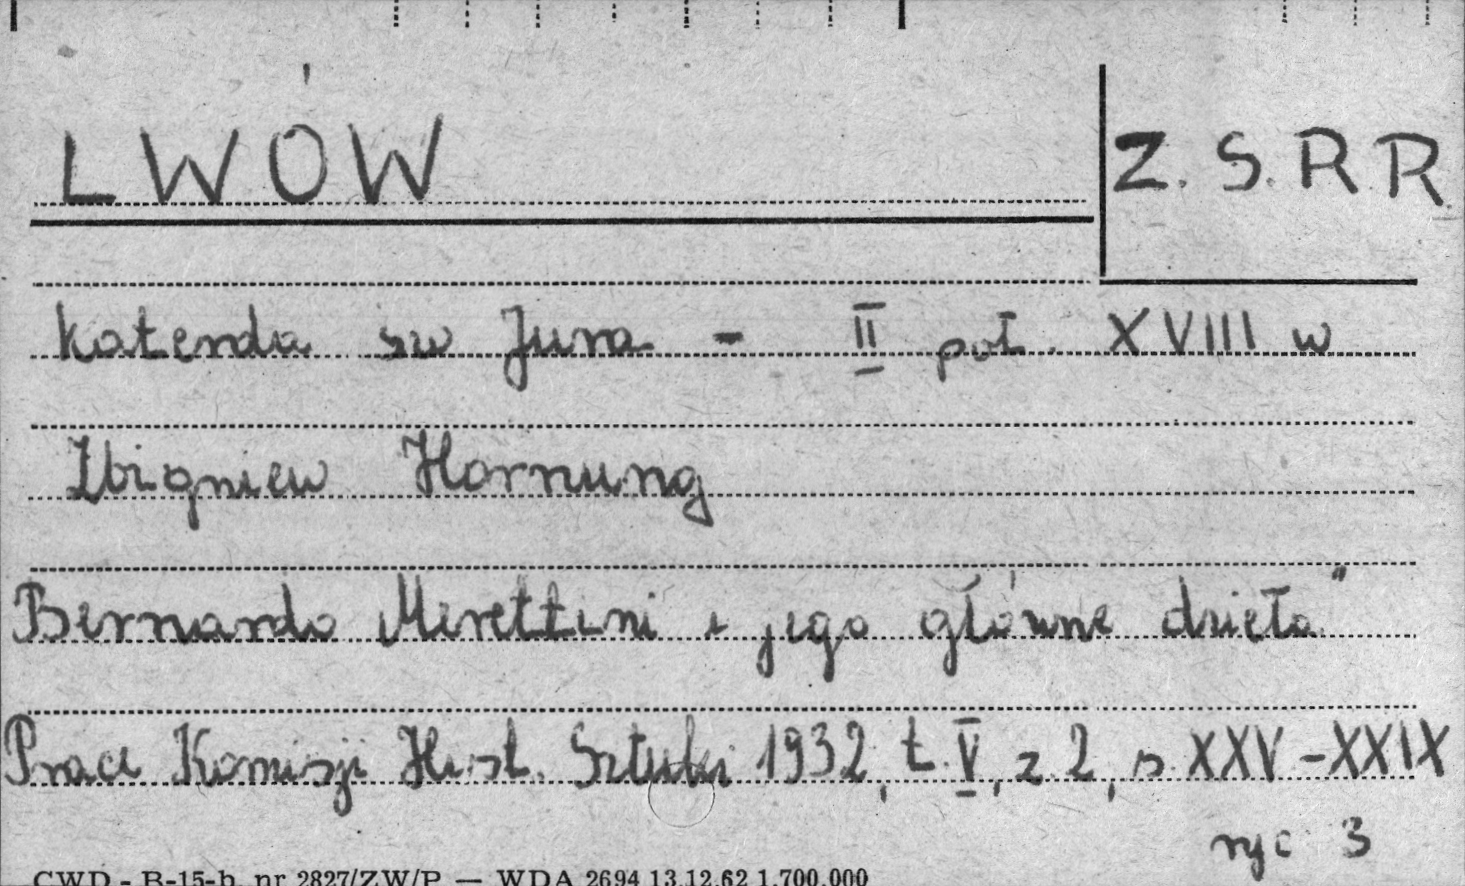 LWÓW
Z.S.R.R.
katedra św Jura - II poł. XVIII w
Zbigniew Hornung
Bernardo Merettini i jego główne dzieła"
Prace Komisji Hist. Sztuki 1932, t. V, z. 2, s. XXV-XXIX
ryc 3
CWD - B-15-b. nr 2827/ZW/P — WDA 2694 13.12.62 1.700.000